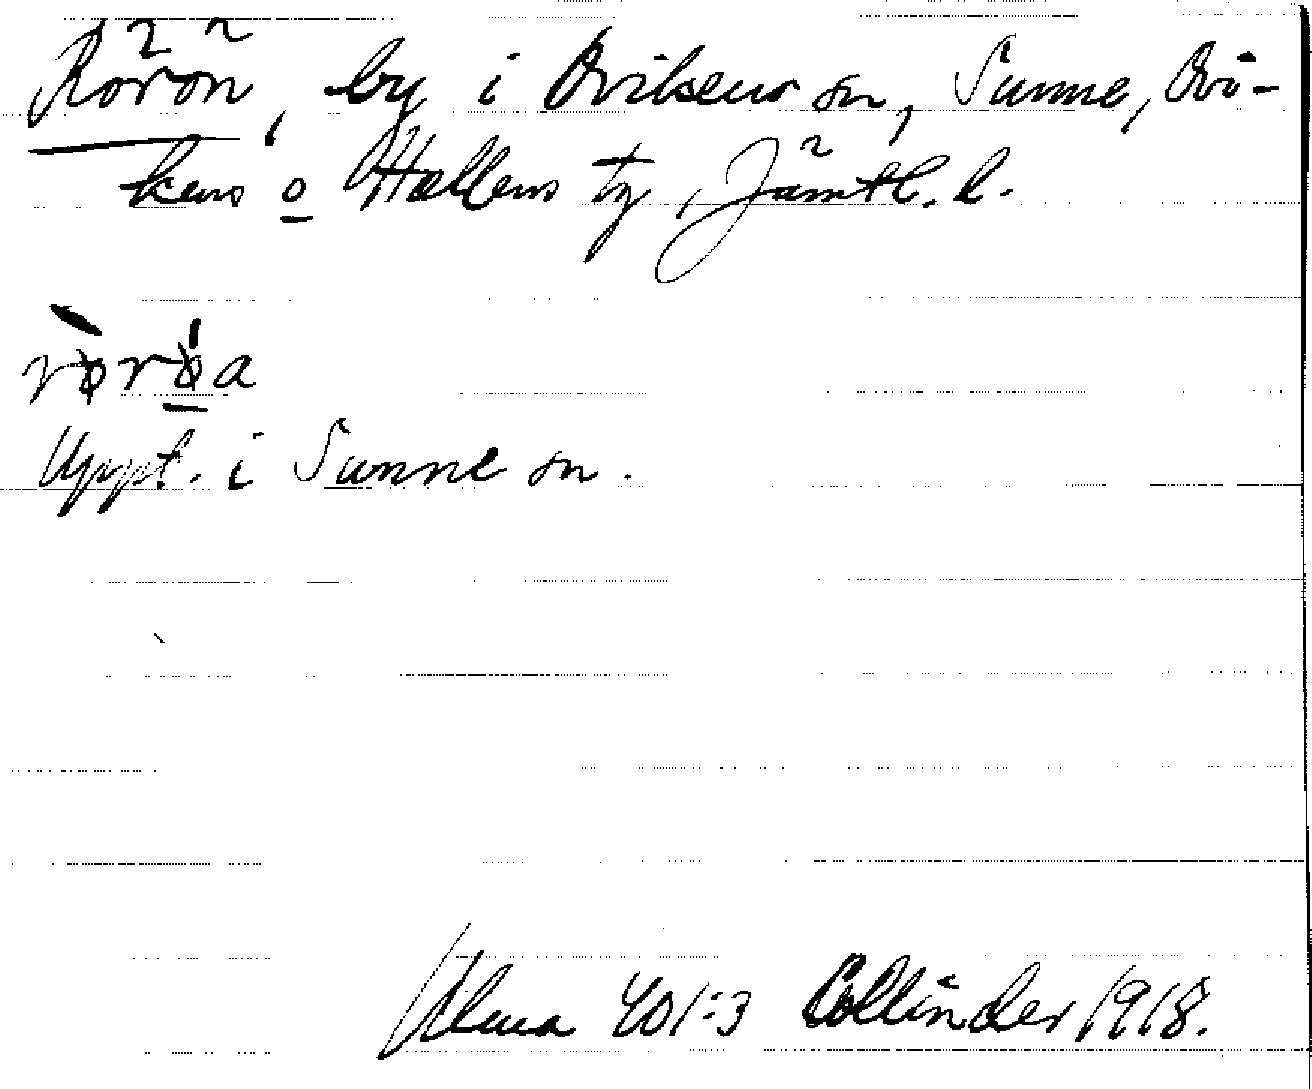 Rörön, by i Ovikens sn, Sunne, Ovi-
kens o Hallens tg, Jämtl. l.
Uppt. i Sunne sn.
Ulma 401:3 Collinder 1918.